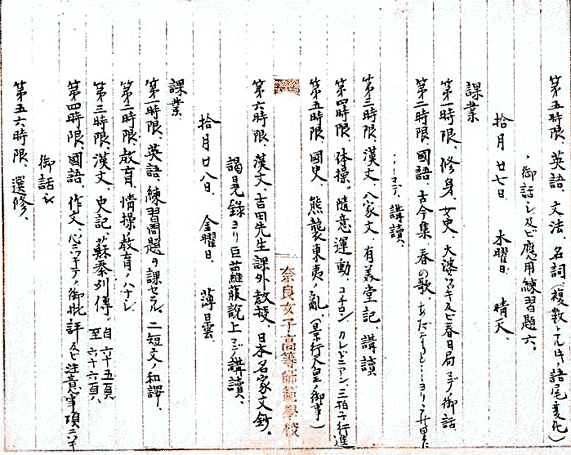 第五時限、英語、文法、名詞(複数
御話シ及ビ應用練習題六、
拾月廿七日 木曜日 晴天、
課業
第一時限、修身 女史、大婆 及ビ春日局 御話
第二時限、國語 古今集 春の歌
マデ、講讀、
第三時限 漢文 八家文 有美堂記 講讀
第四時限 体操、随意運動 コチロン カレドニアン、三拍子行進
第五時限、國史、熊襲東夷ノ亂、(景行天皇ノ御事)
奈良女子高等師範學校
第六時限、漢文、吉田先生課外教授、日本名家文鈔、
ヨリ 説上 マデ講讀、
拾月廿八日、金曜日、薄曇、
課業、
第一時限、英語、練習問題ヲ課セラル、二短文ノ和譯、
第二時限、教育、情操教育ノハナシ、
第三時限、漢文、史記、蘇秦列傳、自六十五頁 至六十六頁、
第四時限、國語、作文、 御批評及ビ注意事項ニツキ
御話シ
第五六時限、選修、